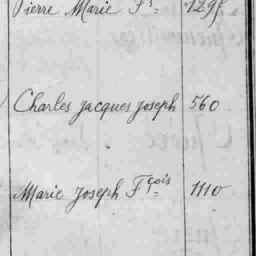 Pierre Marie Fs
Charles Jacques Joseph 560
Marie Joseph Fçois 1110